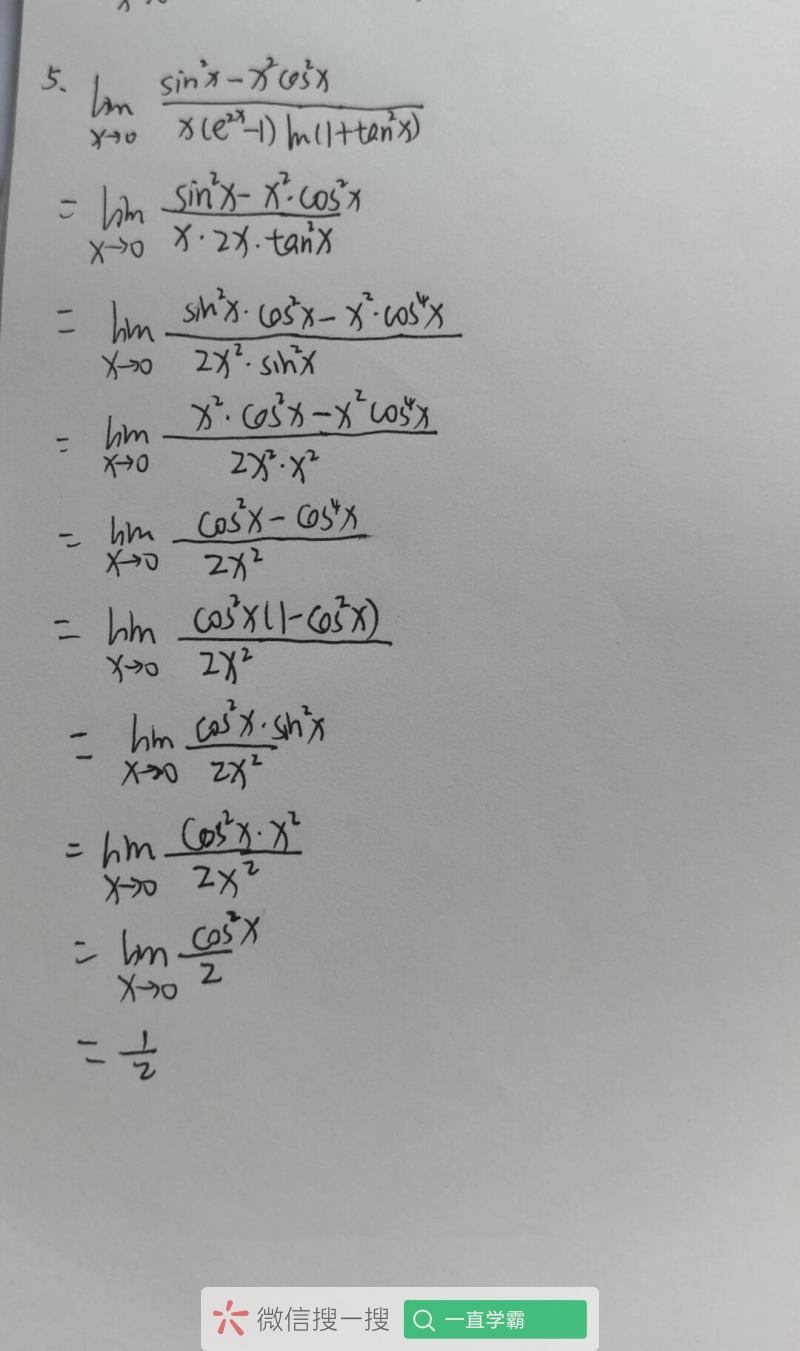 5. lim x→0 (sin²x - x²cos²x) / (x(e²ˣ-1) ln(1+tan²x))
= lim x→0 (sin²x - x²·cos²x) / (x·2x·tan²x)
= lim x→0 (sin²x·cos²x - x²·cos⁴x) / (2x²·sin²x)
= lim x→0 (x²·cos²x - x²cos⁴x) / (2x²·x²)
= lim x→0 (cos²x - cos⁴x) / (2x²)
= lim x→0 (cos²x(1-cos²x)) / (2x²)
= lim x→0 (cos²x·sin²x) / (2x²)
= lim x→0 (cos²x·x²) / (2x²)
= lim x→0 (cos²x) / 2
= 1/2
微信搜一搜 一直学霸